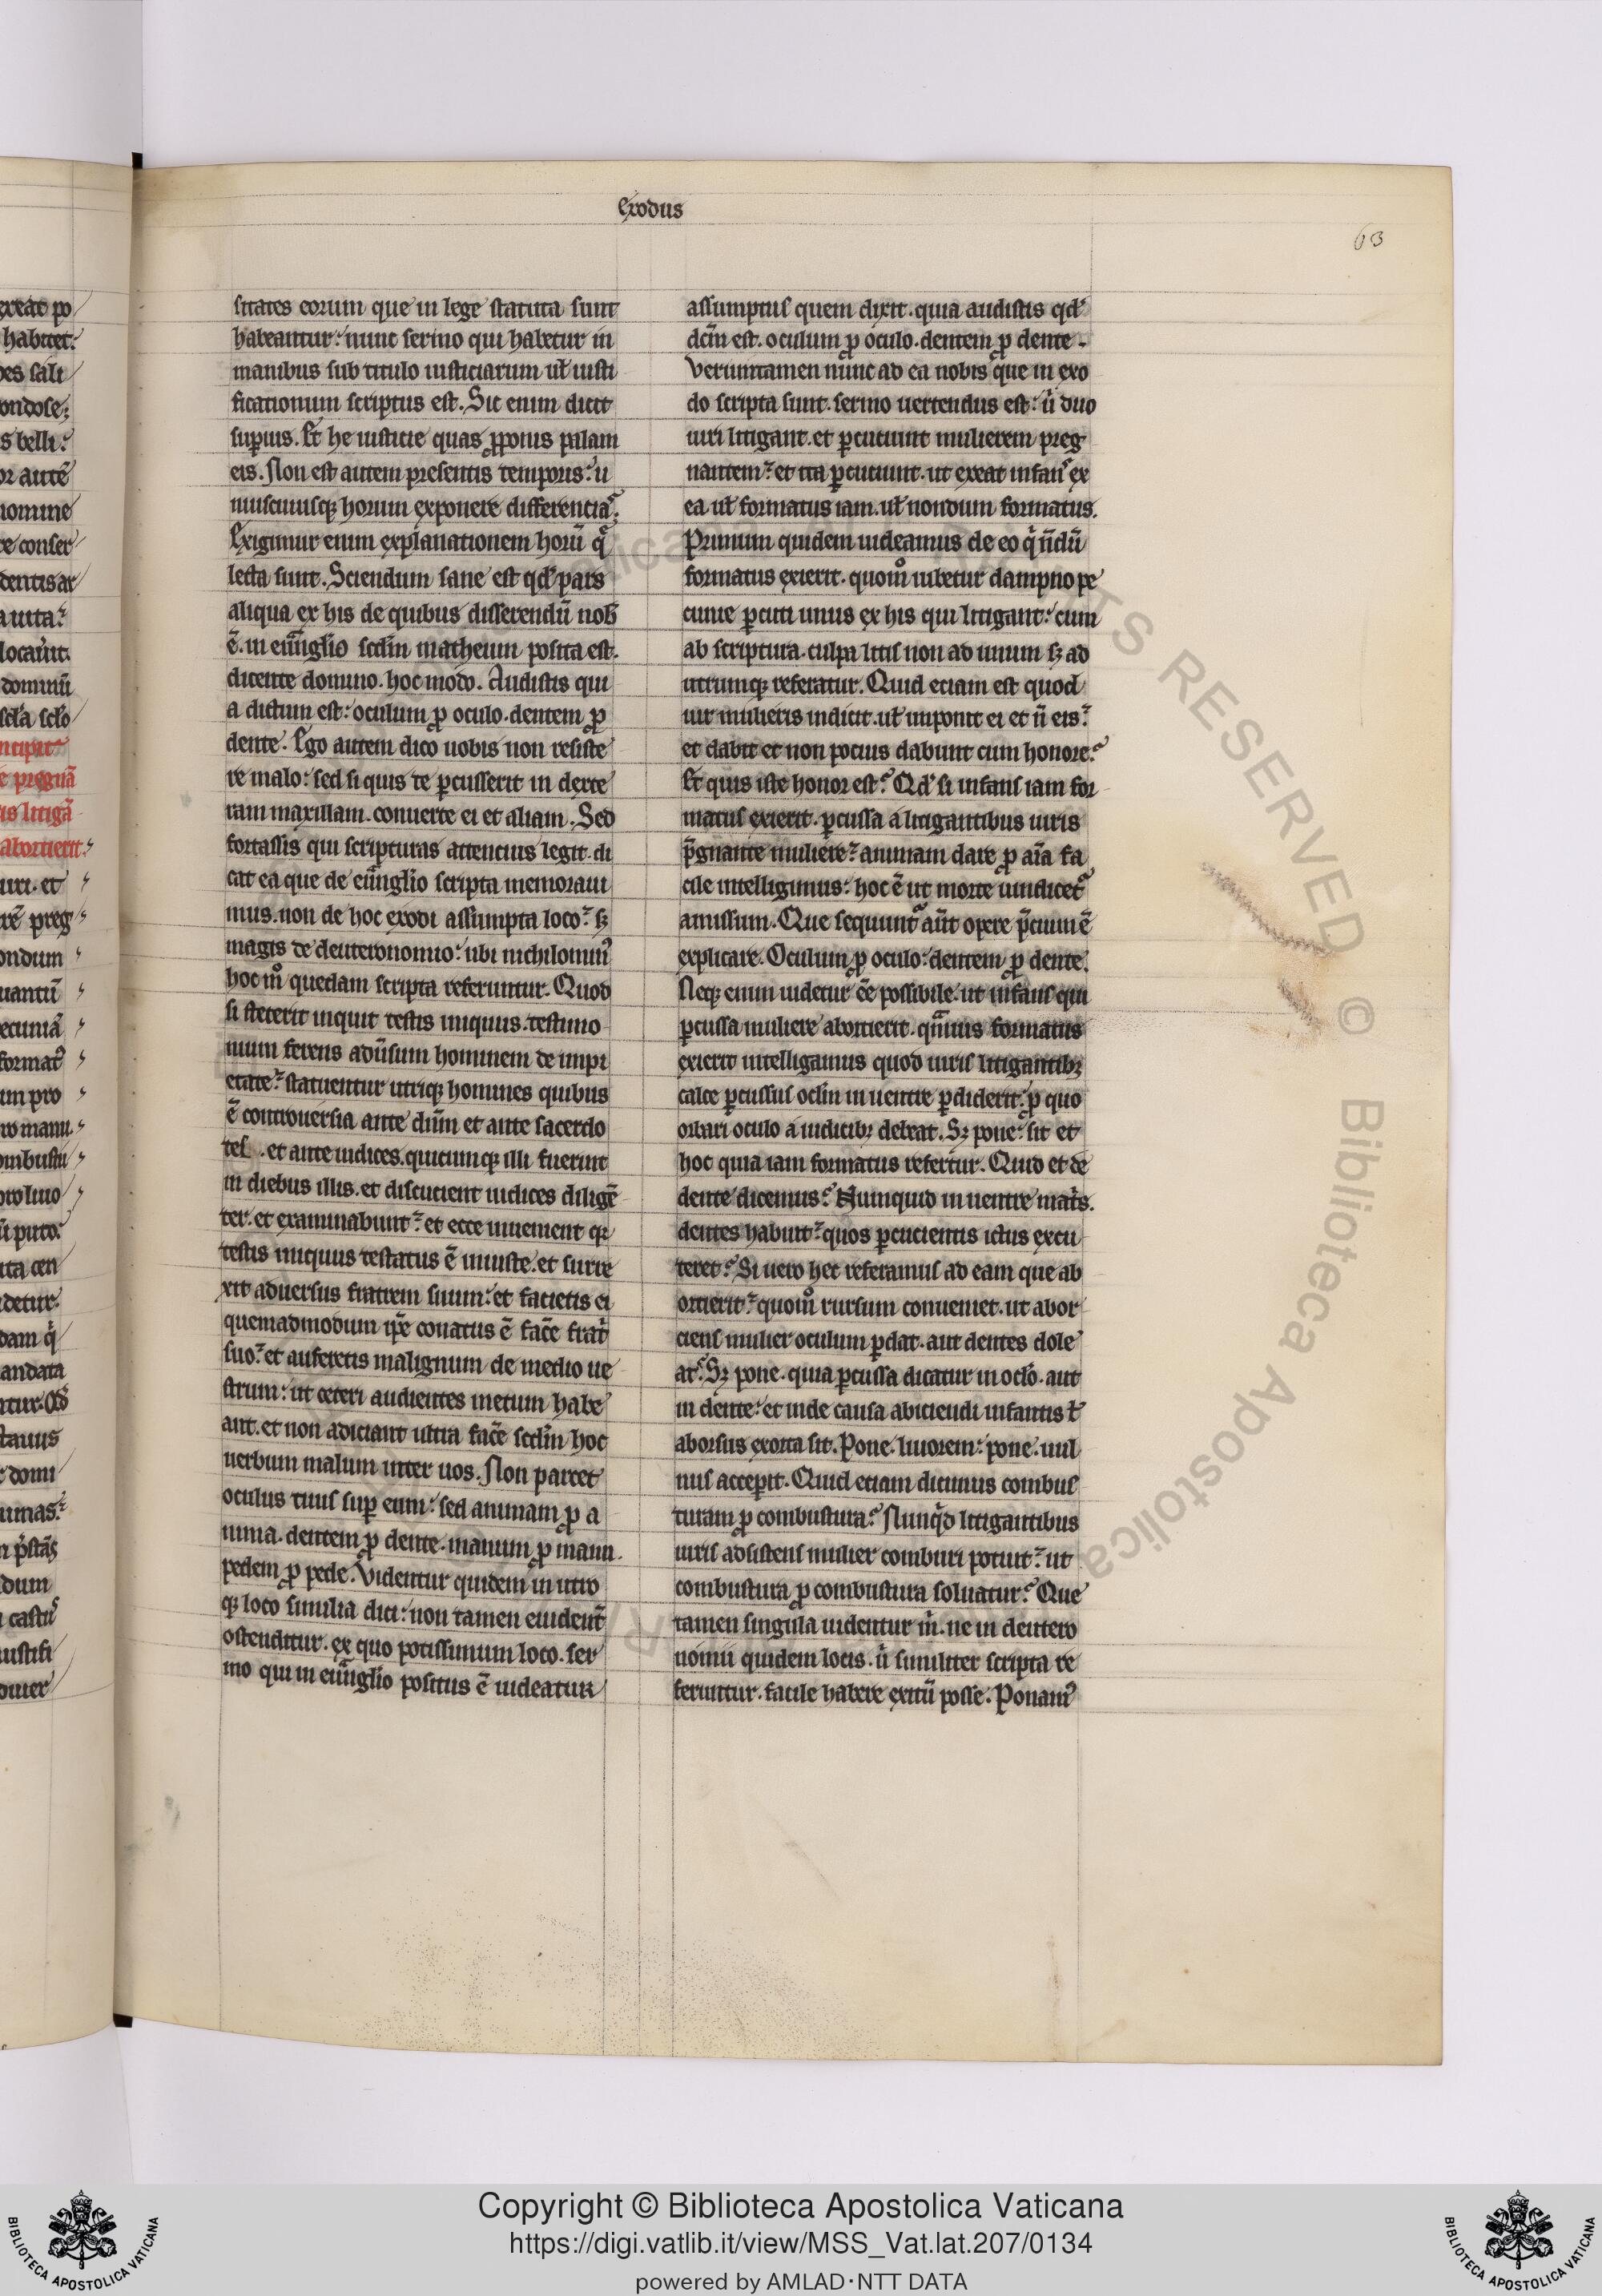 exodus
63
sitates eorum que in lege statuta sunt
habeantur: nunc sermo qui habetur in
manibus sub titulo iusticiarum uł iusti
ficationum scriptus est. Sic enim dicit
sup̱ius. Et he iusticie quas ꝓpones palam
eis. Non est autem presentis temporis: u
niuscuiusqꝫ horum exponere differenciā;
Exigimur enim explanationem horū q̄
lecta sunt. Sciendum sane est qđ pars
aliqua ex his de quibus disserendū nob̄
ē. in euāgłio scđm matheum posita est.
dicente domino. hoc modo. Audistis qui
a dictum est: oculum ꝓ oculo. dentem ꝓ
dente. Ego autem dico uobis non resiste
re malo: sed si quis te ꝑcusserit in dexte
ram maxillam. conuerte ei et aliam. Sed
fortassis qui scripturas attencius legit. di
cat ea que de euāgłio scripta memoraui
mus. non de hoc exodi assumpta loco: sꝫ
magis de deuteronomio: ubi nichilomin᷒
hoc m̊ quedam scripta referuntur. Quod
si steterit inquit testis iniquus. testimo
nium ferens adūsum hominem de impi
etate: statuentur utriqꝫ homines quibus
ē controuersia ante dn̄m et ante sacerdo
tes . et ante iudices. quicumqꝫ illi fuerint
in diebus illis. et discutient iudices diligē
ter. et examinabunt: et ecce inuenient qꝛ
testis iniquus testatus ē iniuste. et surre
xit aduersus fratrem suum: et facietis ei
quemadmodum ip̄e conatus ē fac̄e frat̄
suo: et auferetis malignum de medio ue
strum: ut ceteri audientes metum habe
ant. et non adiciant ultra fac̄e scđm hoc
uerbum malum inter uos. Non parcet
oculus tuus suꝑ eum: sed animam ꝓ a
nima. dentem ꝓ dente. manum ꝓ manu.
pedem ꝓ pede. Videntur quidem in utro
qꝫ loco similia dici: non tamen euident̄
ostenditur. ex quo potissimum loco. ser
mo qui in euāgłio positus ē uideatur
assumptus quem dixit. quia audistis qđ
dc̄m est. oculum ꝓ oculo. dentem ꝓ dente.
Verumtamen nunc ad ea nobis que in exo
do scripta sunt. sermo uertendus est: ů duo
uiri litigant. et ꝑcutiunt mulierem preg
nantem: et ita ꝑcutiunt. ut exeat infans ex
ea uł formatus iam. uł nondum formatus.
Primum quidem uideamus de eo q̇ n̄dū
formatus exierit. quom̊ iubetur dampno pe
cunie ꝑcuti unus ex his qui litigant: cum
ab scriptura. culpa litis non ad unum sꝫ ad
utrumqꝫ referatur. Quid eciam est quod
uir mulieris indicit. uł imponit ei et n̄ eis:
et dabit et non pocius dabunt cum honore?
Et quis iste honor est? Qđ si infans iam for
matus exierit. ꝑcussa a litigantibus uiris
p̄gnante muliere: animam dare ꝓ aīa fa
cile intelligimus: hoc ē ut morte uindicet᷑
amissum. Que sequunt᷑ aūt opere p̄cium ē
explicare. Oculum ꝓ oculo: dentem ꝓ dente.
Neqꝫ enim uidetur ēe possibile. ut infans qui
ꝑcussa muliere abortierit. q̄muis formatus
exierit intelligamus quod uiris litigantibꝫ
calce ꝑcussus oclm̄ in uentre ꝑdiderit: ꝓ quo
orbari oculo a iudicibꝫ debeat. Sꝫ pone: sit et
hoc quia iam formatus refertur. Quid et de
dente dicemus? Numquid in uentre mat̄s.
dentes habuit: quos ꝑcucientis ictus excu
teret? Si uero hec referamus ad eam que ab
ortierit: quom̊ rursum conueniet. ut abor
ciens mulier oculum ꝑdat. aut dentes dole
at? Sꝫ pone. quia ꝑcussa dicatur in ocło. aut
in dente: et inde causa abiciendi infantis ł
aborsus exorta sit. Pone. liuorem: pone. uul
nus accepit. Quid etiam dicimus combus
turam ꝓ combustura? Nunq̇d litigantibus
uiris adsistens mulier comburi potuit: ut
combustura ꝓ combustura soluatur? Que
tamen singula uidentur m̊. ne in deutero
nomii quidem locis. ů similiter scripta re
feruntur. facile habere exitū posse. Ponam᷒
Copyright © Biblioteca Apostolica Vaticana
https://digi.vatlib.it/view/MSS_Vat.lat.207/0134
powered by AMLAD·NTT DATA